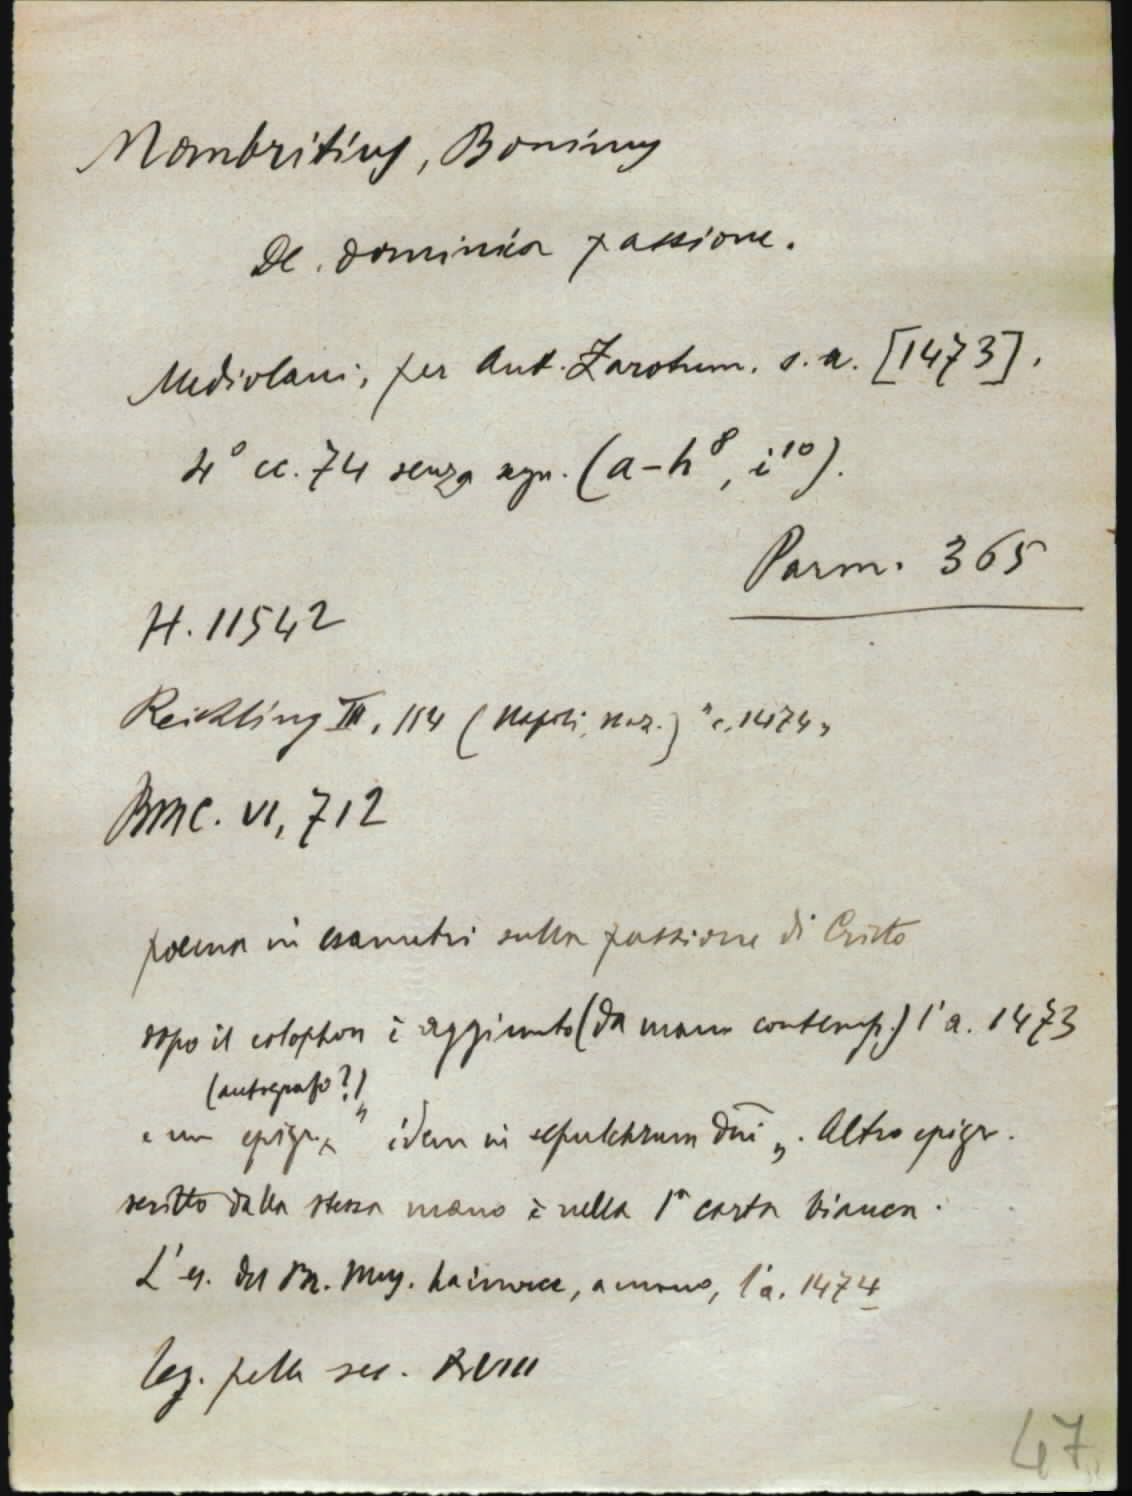 Mombritius, Boninus
De dominica passione.
Mediolani, per Ant. Zarotum. s. a. [1473].
4° cc. 74 senza sgn. (a-h⁸, i¹⁰).
Parm. 365
H. 11542
Reichling III, 114 (Napoli, Naz.) "c. 1474"
BMC. VI, 712
poema in esametri sulla passione di Cristo
dopo il colophon è aggiunto (da mano contemp.) l'a. 1473
(autografo?)
e un epigr. "idem in sepulchrum dni". Altro epigr.
scritto dalla stessa mano è nella 1ª carta bianca.
L'es. del Br. Mus. ha invece, a mano, l'a. 1474
leg. pelle sec. XVIII
47